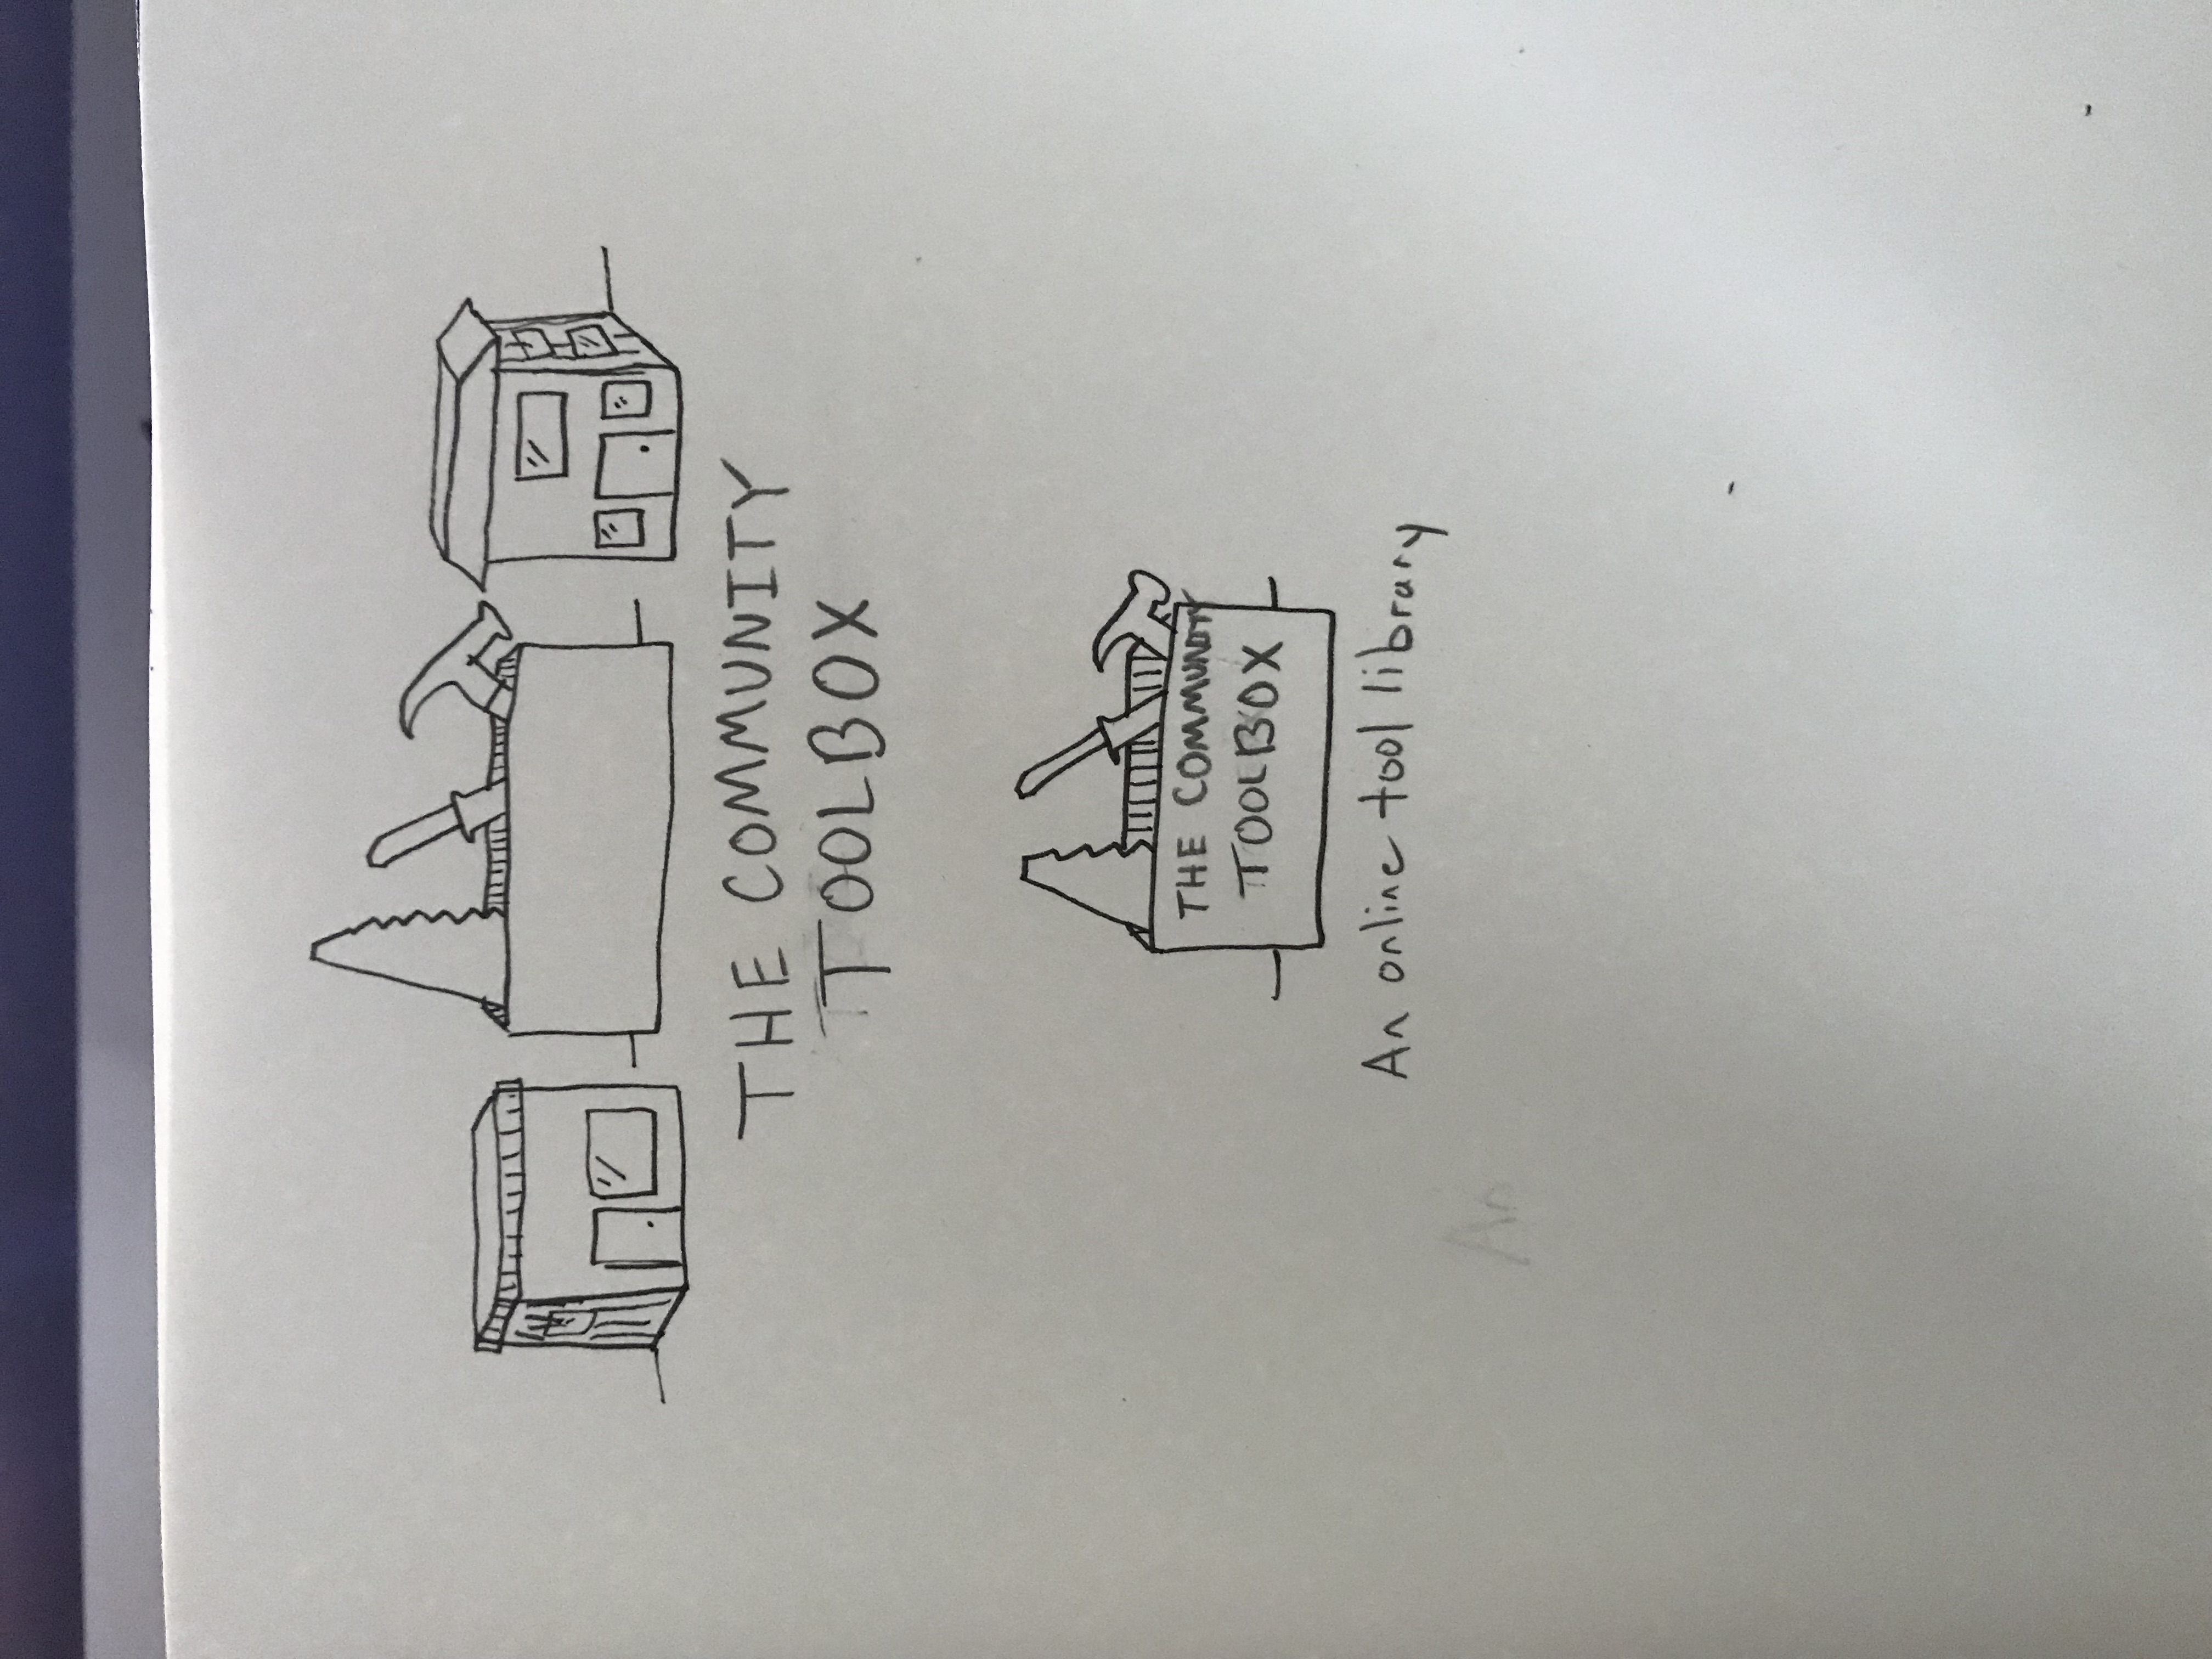 THE COMMUNITY
TOOLBOX
THE COMMUNITY
TOOLBOX
An online tool library
An